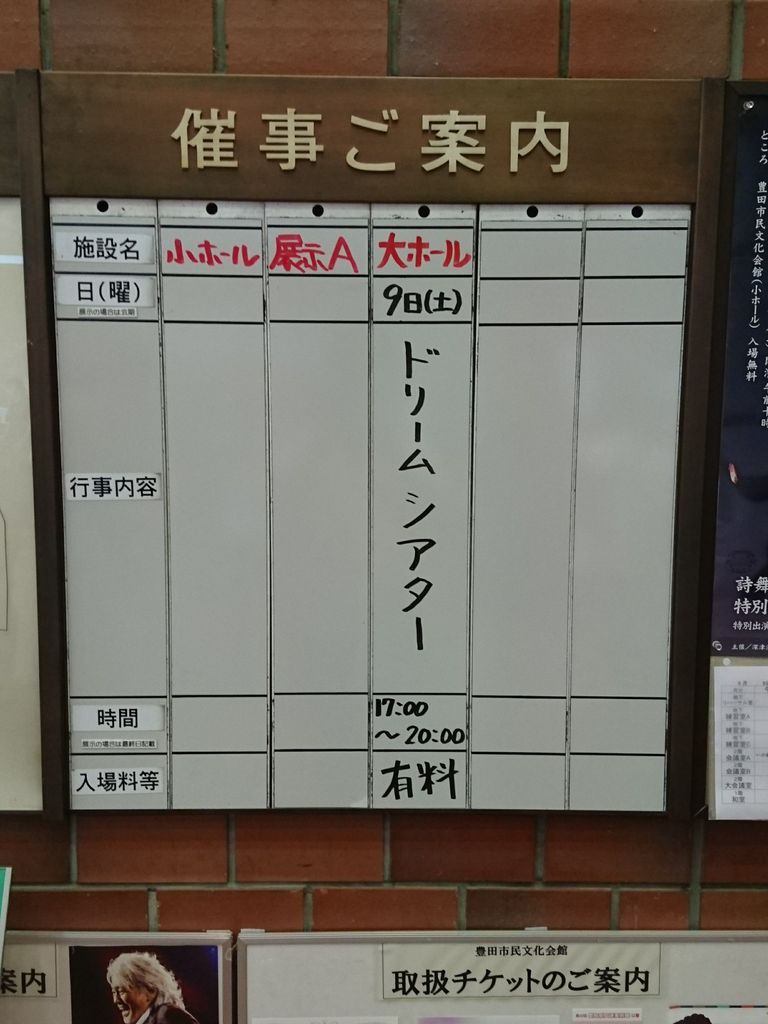 催事ご案内
施設名
小ホール
展示A
大ホール
日(曜)
展示の場合は会期
9日(土)
行事内容
ドリーム シアター
時間
展示の場合は最終日記載
17:00
～20:00
入場料等
有料
ところ 豊田市民文化会館(小ホール) 入場無料
詩舞
特別
特別出演
練習室A
練習室B
練習室C
会議室A
会議室B
大会議室
和室
案内
豊田市民文化会館
取扱チケットのご案内